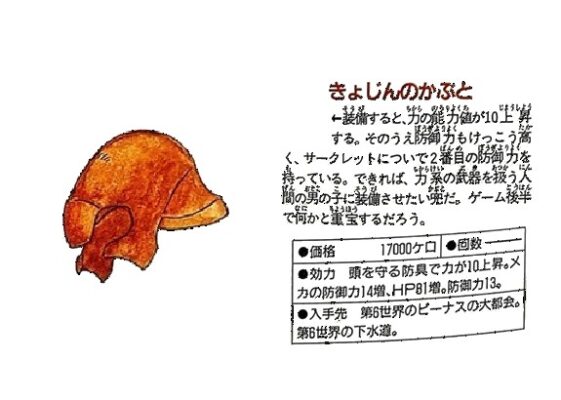 きょじんのかぶと
←装備すると、力の能力値が10上昇
する。そのうえ防御力もけっこう高
く、サークレットについで2番目の防御力を
持っている。できれば、力系の武器を扱う人
間の男の子に装備させたい兜だ。ゲーム後半
で何かと重宝するだろう。
●価格 17000ケロ ●回数――
●効力 頭を守る防具で力が10上昇。メ
カの防御力14増、HP81増。防御力13。
●入手先 第6世界のビーナスの大都会。
第6世界の下水道。